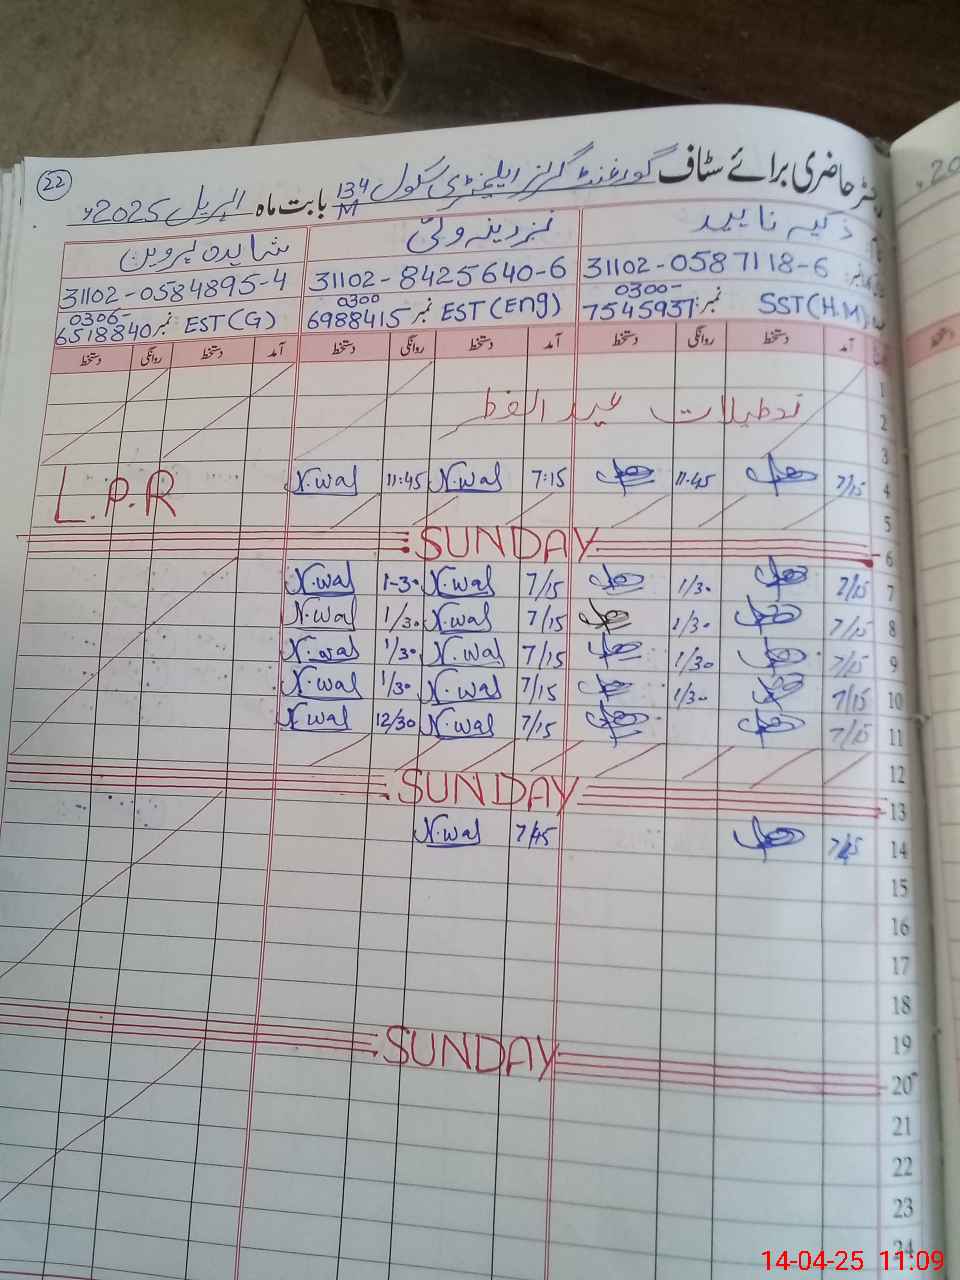 22
رجسٹر حاضری برائے سٹاف گورنمنٹ گرلز ایلیمنٹری سکول 134/M بابت ماہ اپریل 2025ء
ذکیہ ناہید
31102-0587118-6
SST(H.M) نمبر 0300-7545937
31102-8425640-6
EST(Eng) نمبر 0300 6988415
شاہدہ پروین
31102-0584895-4
EST(G) نمبر 0306-6518840
آمد دستخط روانگی دستخط آمد دستخط روانگی دستخط آمد دستخط روانگی دستخط
1
تعطیلات عید الفطر
2
3
4 7/15 11:45 7:15 N.wal 11:45 N.wal
L.P.R
5
SUNDAY
6
7 7/15 1/30 7/15 N.wal 1-30 N.wal
8 7/15 1/30 7/15 N.wal 1/30 N.wal
9 7/15 1/30 7/15 N.wal 1/30 N.wal
10 7/15 1/30 7/15 N.wal 1/30 N.wal
11 7/15 7/15 N.wal 12/30 N.wal
12
SUNDAY
13
14 7/45 7/45 N.wal
15
16
17
18
19
SUNDAY
20
21
22
23
24
14-04-25 11:09